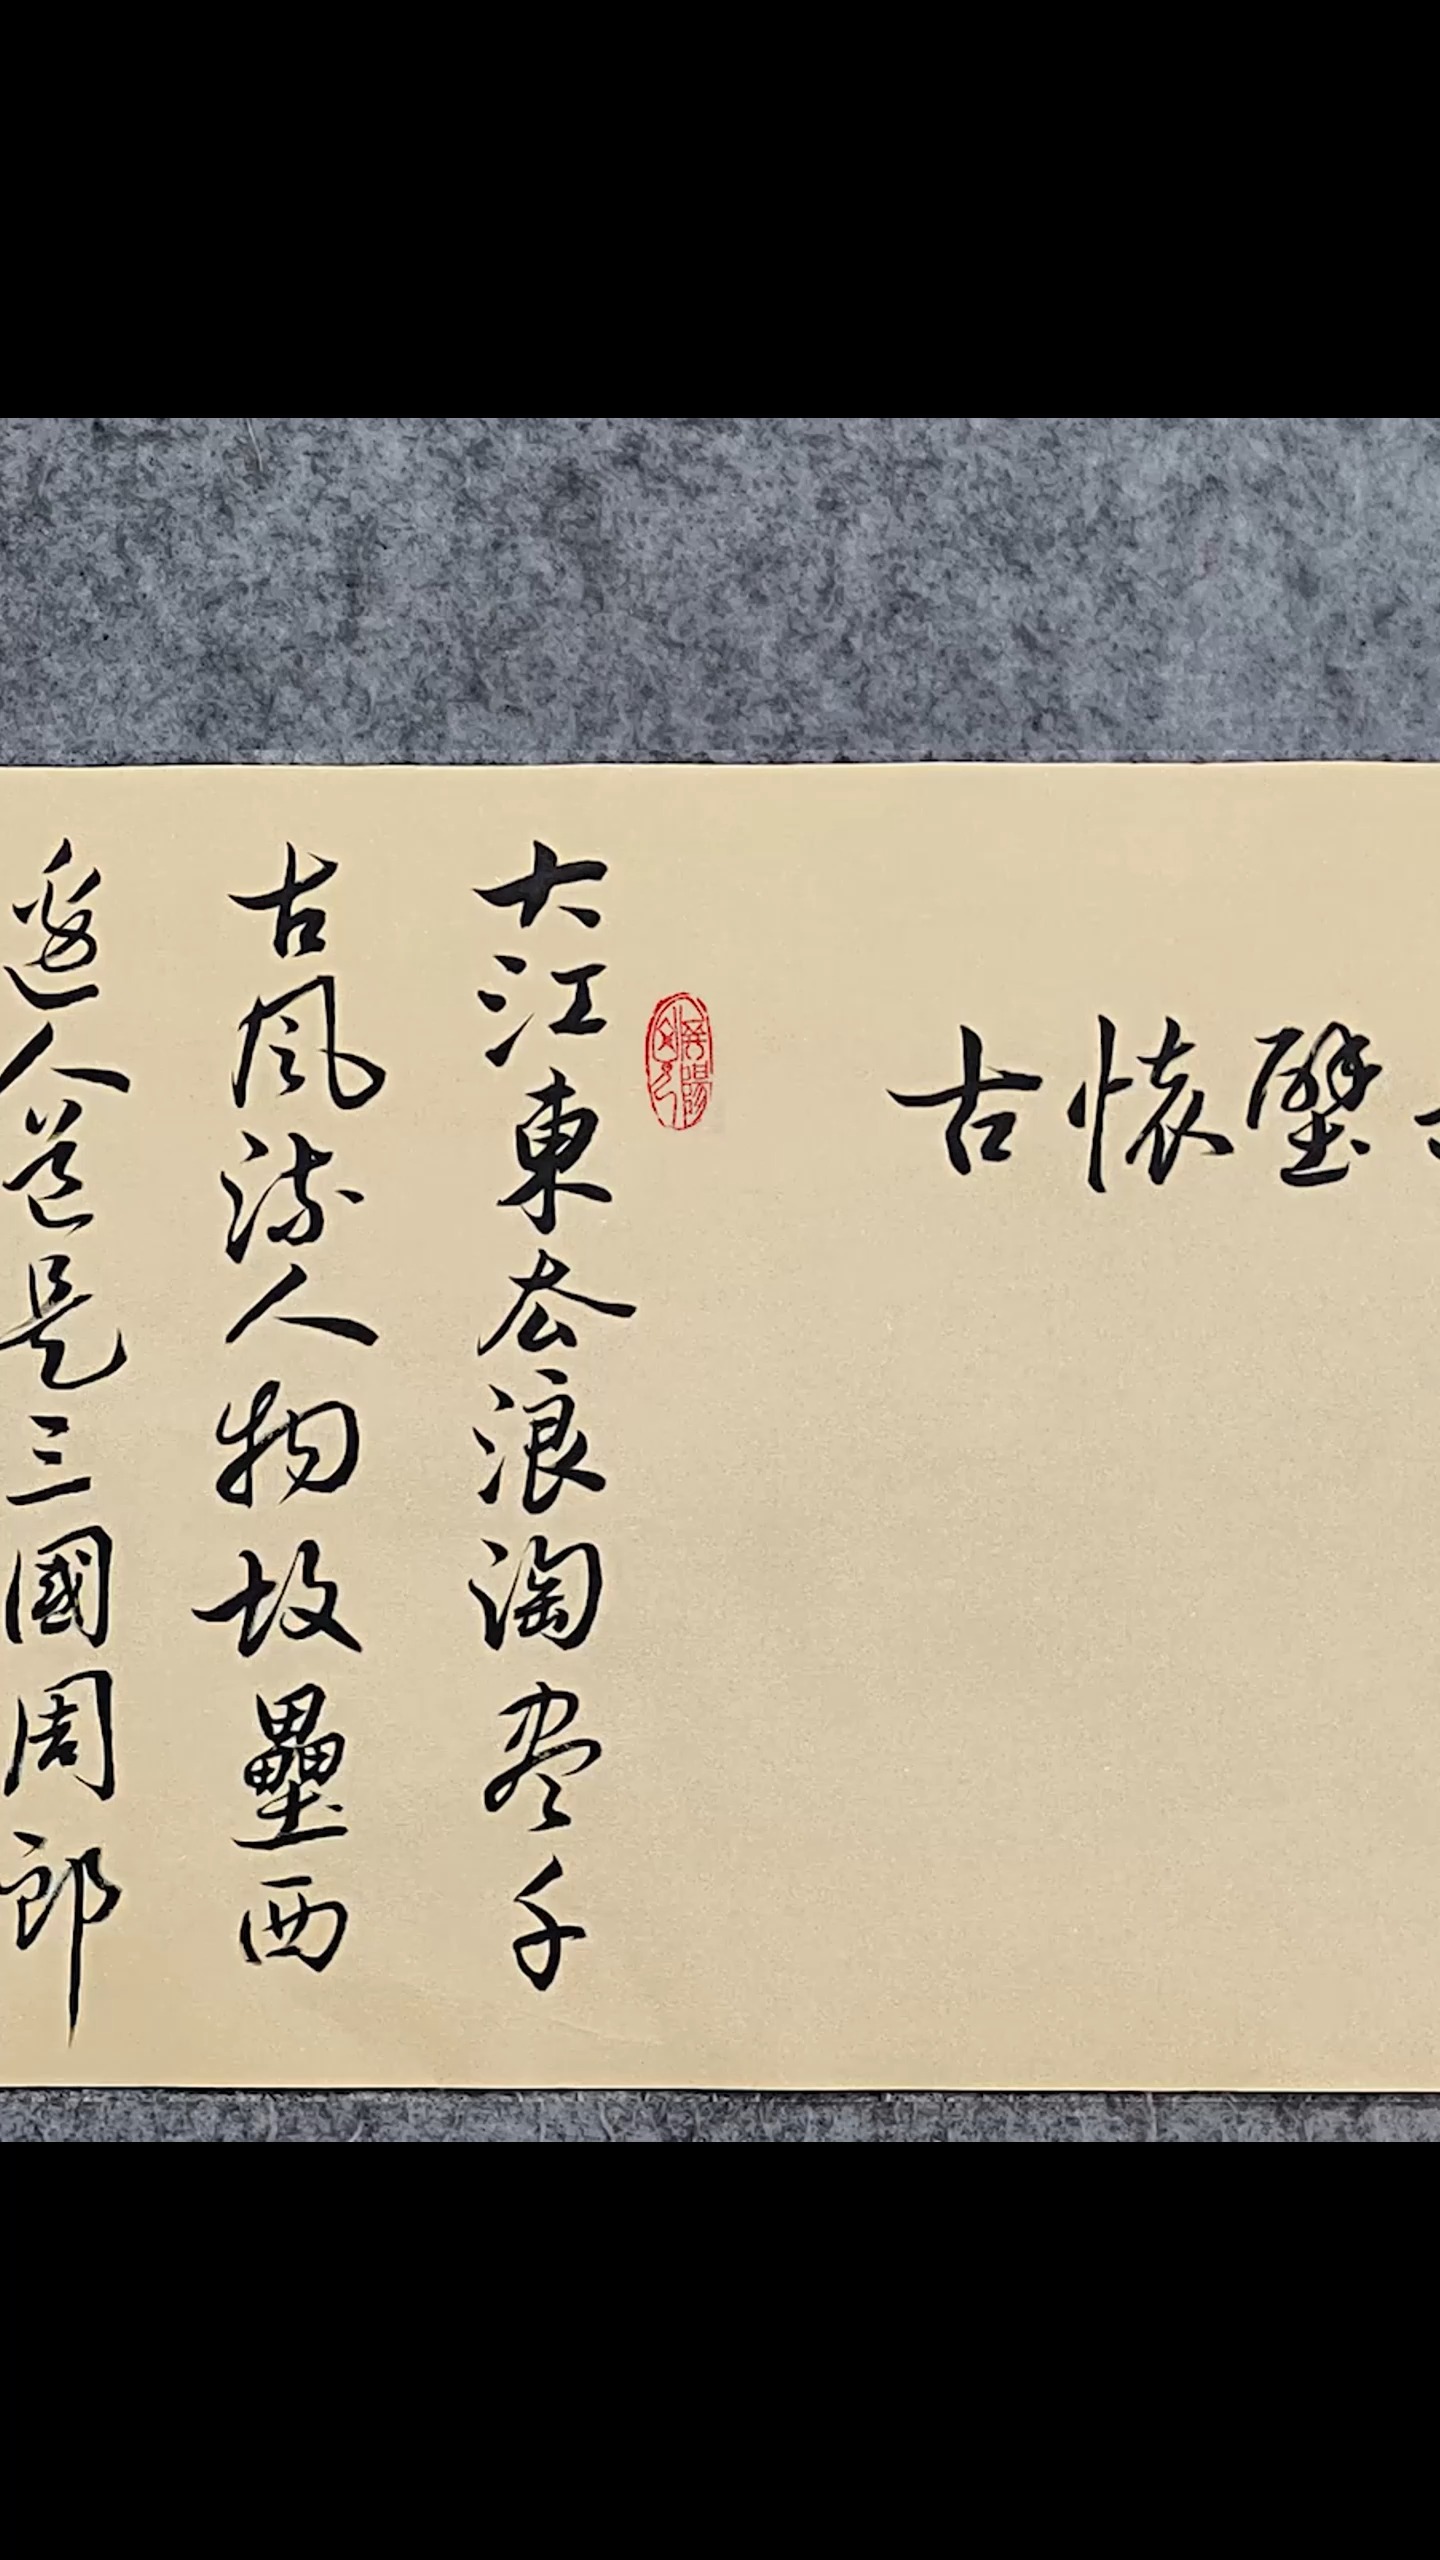 壁懷古
大江東去浪淘盡千
古風流人物故壘西
邊人道是三國周郎